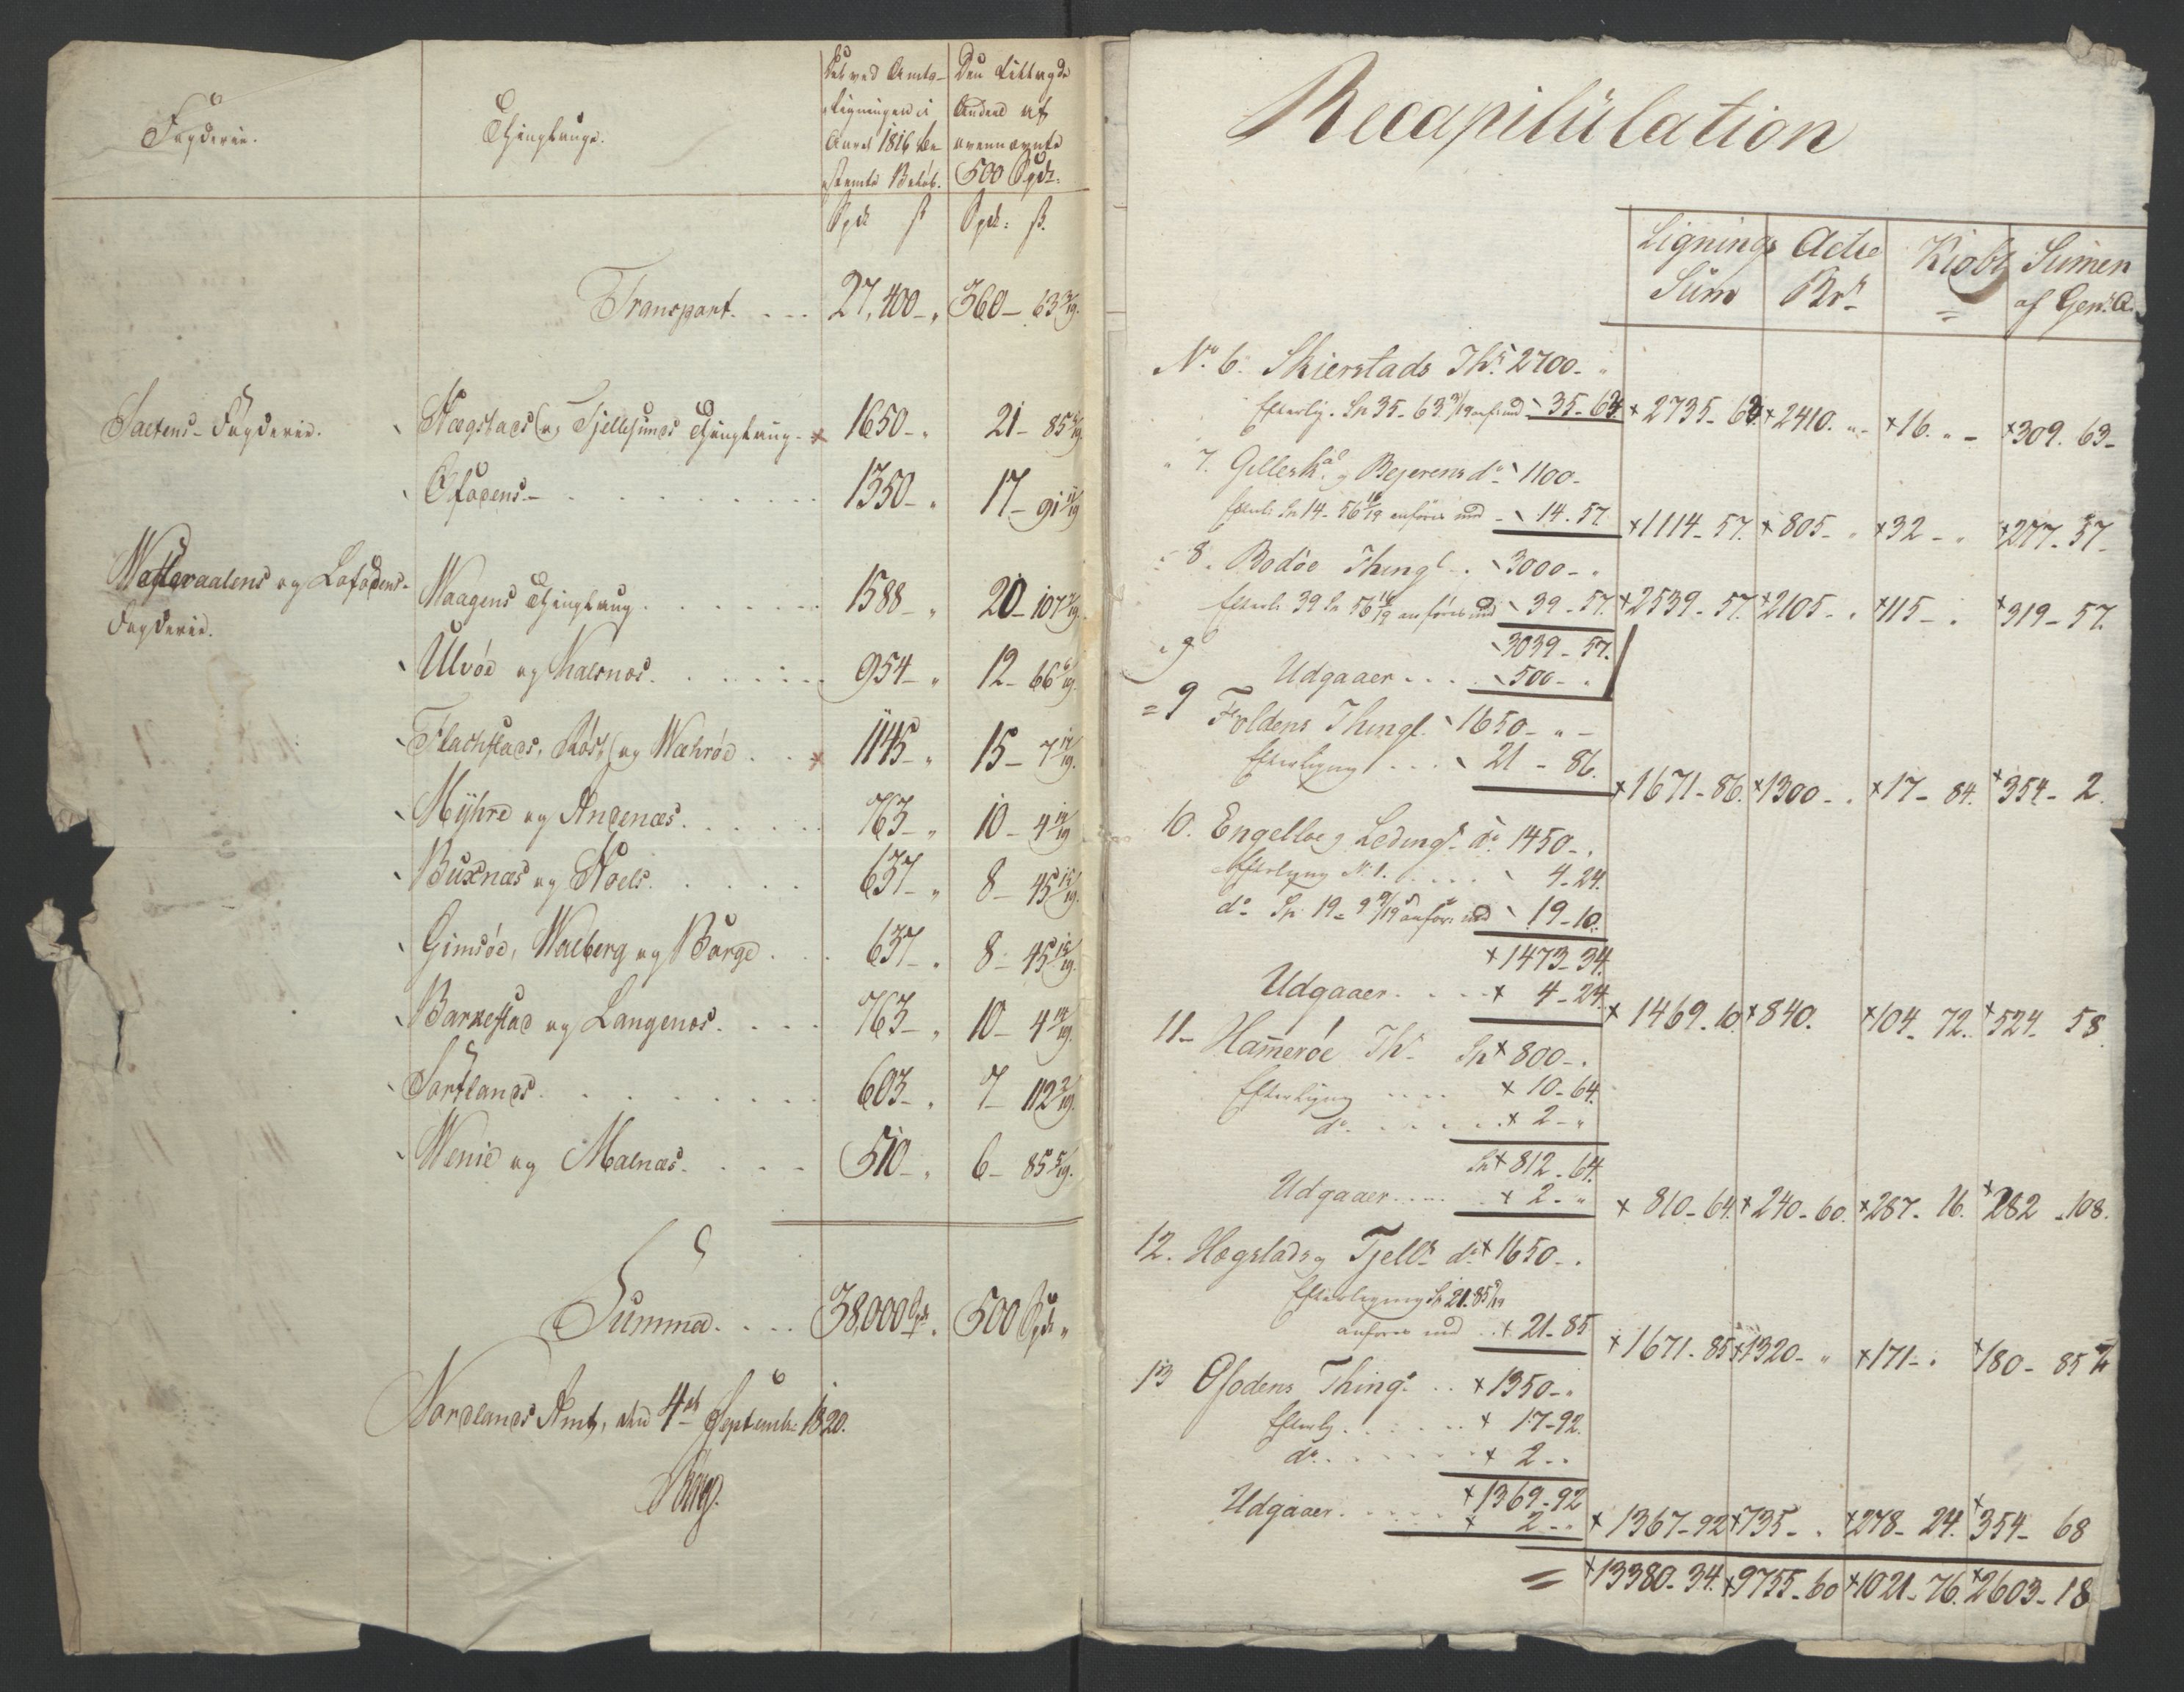 Fogderie.
Thinglauge.
Det ved Amts-
ligningen i
Aaret 1816 be-
stemte Beløb.
Den tillagde
Andeel af
ovennævnte
500 Spdr.
Spdr ß
Spdr: ß.
Transport. . . . 27,400 - „ 360 - 63 3/19.
Saltens - Fogderie. Hægstads og Tjellesunds Thinglaug. 1650 - „ 21 - 85 5/19
Ofodens. - . . . . 1350 - „ 17 - 91 11/19
Westeraalens og Lofodens- Waagens Thinglaug. . . . 1588 - „ 20 - 107 7/19.
Fogderie.
Ulvöe og Kalsnes. . . . 954 - „ 12 - 66 6/19.
Flachstads, Röst og Wæröe . . 1145 - „ 15 - 7 17/19.
Myhre og Andenæs. . . . 763 - „ 10 - 4 14/19
Buxnæs og Hoels. . . . 637 - „ 8 - 45 15/19.
Gimsöe, Walberg og Borge . . . 637 - „ 8 - 45 15/19.
Barkestad og Langenæs. . . . 763 - „ 10 - 4 14/19.
Sortlands. . . . 603 - „ 7 - 112 2/19.
Wenie og Malnæs. . . . 510 - „ 6 - 85 5/19.
Summa. . . . 38,000 Spdr. 500 Spdr „
Nordlands Amt, den 4de September 1820.
Recapitulation
Lignings Sum
Actie Br.
Kiøbs
Sumen af Gen. A.
No. 6. Skierstads Th. 2700 - „
Efterlig. Sp 35 - 63 3/19 anf. med 35 - 63. 2735 - 63 2410. „ - 16. „ - 309. 63 -
„ 7. Gillesk. og Bejerens do 1100 -
Efterli Sp 14 - 56 16/19 anføres med - 14 . 57 1114 - 57. 805 - „ 32 - „ 277 - 57 -
„ 8. Bodöe Thingl . 3000 - „
Efterli 39 Sp 56 16/19 anføres med 39 - 57. 2539 - 57. 2105 - . 115 - . 319 - 57.
3039 - 57.
Udgaaer . . . . 500 - .
= 9 Foldens Thingl. 1650 - „ -
Efterligning . . . 21 - 86. 1671 - 86. 1300 - . 17 - 84. 354 - 2.
10. Engelöe og Ledings do 1450 - .
Efterligning N. 1. . . . . 4 - 24.
do Sp 19 - 9 9/19 anføres med 19 - 10.
1473 - 34.
Udgaaer. . . . 4 - 24. 1469. 10. 840. 104 - 72. 524. 58.
11 - Hamerøe Th. Sp 800 - .
Efterligning . . . . 10 - 64.
do. . . . . . 2 - „
Sp 812 - 64.
Udgaaer. . . . . 2 - „ 810 - 64. 240 - 60. 287 - 16. 282 - 108.
12. Hægstads og Tjell. do 1650 - .
Efterligning Sp 21. 85 5/19
anføres med . . 21 - 85 1671 - 85 1320 - „ 171 - . 180 - 85
13 Ofodens Thing. . . 1350 - „
Efterlig. . . . . . 17 - 92.
do. . . . . . 2 - .
1369 - 92
Udgaaer. . . . . 2 - „ 1367 - 92 735 - . 278 - 24. 354 - 68
= 13380 - 34. 9755 - 60 1021 - 76. 2603 - 18